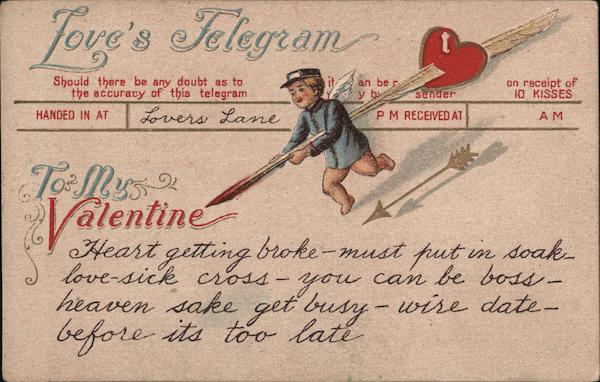 Love's Telegram
Should there be any doubt as to it an be r on receipt of
the accuracy of this telegram y b sender 10 KISSES
HANDED IN AT Lovers Lane P M RECEIVED AT A M
To My
Valentine
Heart getting broke - must put in soak -
love-sick cross - you can be boss -
heaven sake get busy - wire date -
before its too late